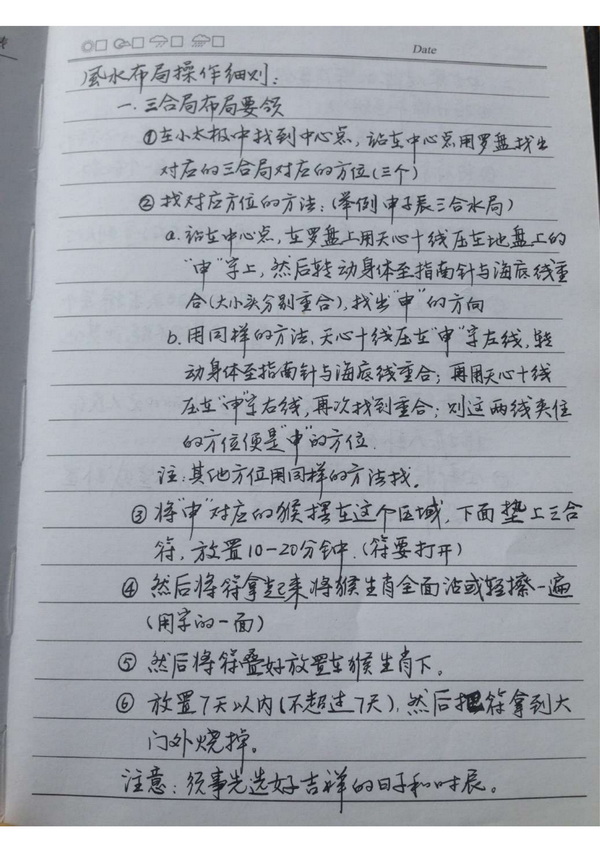 Date
風水布局操作细则：
一.三合局布局要领
①在小太极中找到中心点，站在中心点用罗盘找出
对应的三合局对应的方位(三个)
②找对应方位的方法：(举例 申子辰三合水局)
a.站在中心点，在罗盘上用天心十线压在地盘上的
“申”字上，然后转动身体至指南针与海底线重
合(大小头分别重合)，找出“申”的方向
b.用同样的方法，天心十线压在“申”字左线，转
动身体至指南针与海底线重合；再用天心十线
压在“申”字右线，再次找到重合；则这两线夹住
的方位便是“申”的方位.
注：其他方位用同样的方法找。
③将“申”对应的猴摆在这个区域，下面垫上三合
符，放置10-20分钟.(符要打开)
④然后将符拿起来将猴生肖全面沾或轻擦一遍
(用字的一面)
⑤然后将符叠好放置在猴生肖下。
⑥放置7天以内(不超过7天)，然后把符拿到大
门外烧掉。
注意：须事先选好吉祥的日子和时辰。